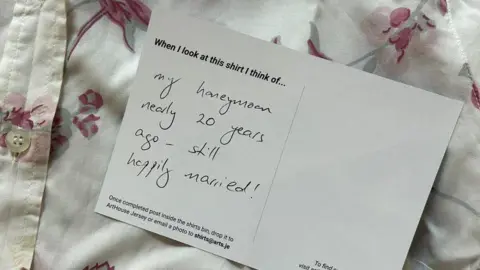 When I look at this shirt I think of...
my honeymoon
nearly 20 years
ago - still
happily married!
Once completed post inside the shirts bin, drop it to
ArtHouse Jersey or email a photo to shirts@arts.je
To find
visit